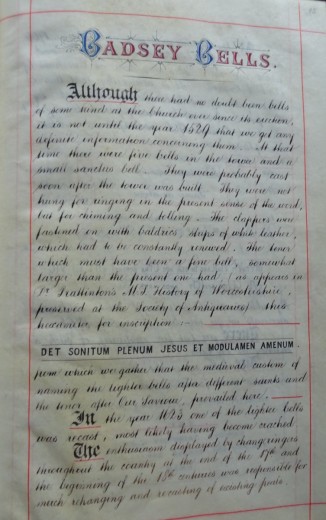 BADSEY BELLS.
Although there had no doubt been bells
of some kind at the Church ever since its erection,
it is not until the year 1529 that we get any
definite information concerning them. At that
time there were five bells in the tower and a
small sanctus bell. They were probably cast
soon after the tower was built. They were not
hung for ringing in the present sense of the word,
but for chiming and tolling. The clapper was
fastened on with baldrics, straps of white leather,
which had to be constantly renewed. The tenor
which must have been a fine bell, somewhat
larger than the present one had, (so appears in
Dr Prattinton's M.S. History of Worcestershire,
preserved at the Society of Antiquaries) this
hexameter for inscription
DET SONITUM PLENUM JESUS ET MODULAMEN AMENUM.
from which we gather that the mediæval custom of
naming the lighter bells after different saints and
the tenor after Our Saviour, prevailed here.
In the year one of the lighter bells
was recast, most likely having become cracked
The enthusiasm displayed by change ringers
throughout the country at the end of the 17th and
the beginning of the 18th centuries was responsible for
much rehanging and recasting of existing peals.